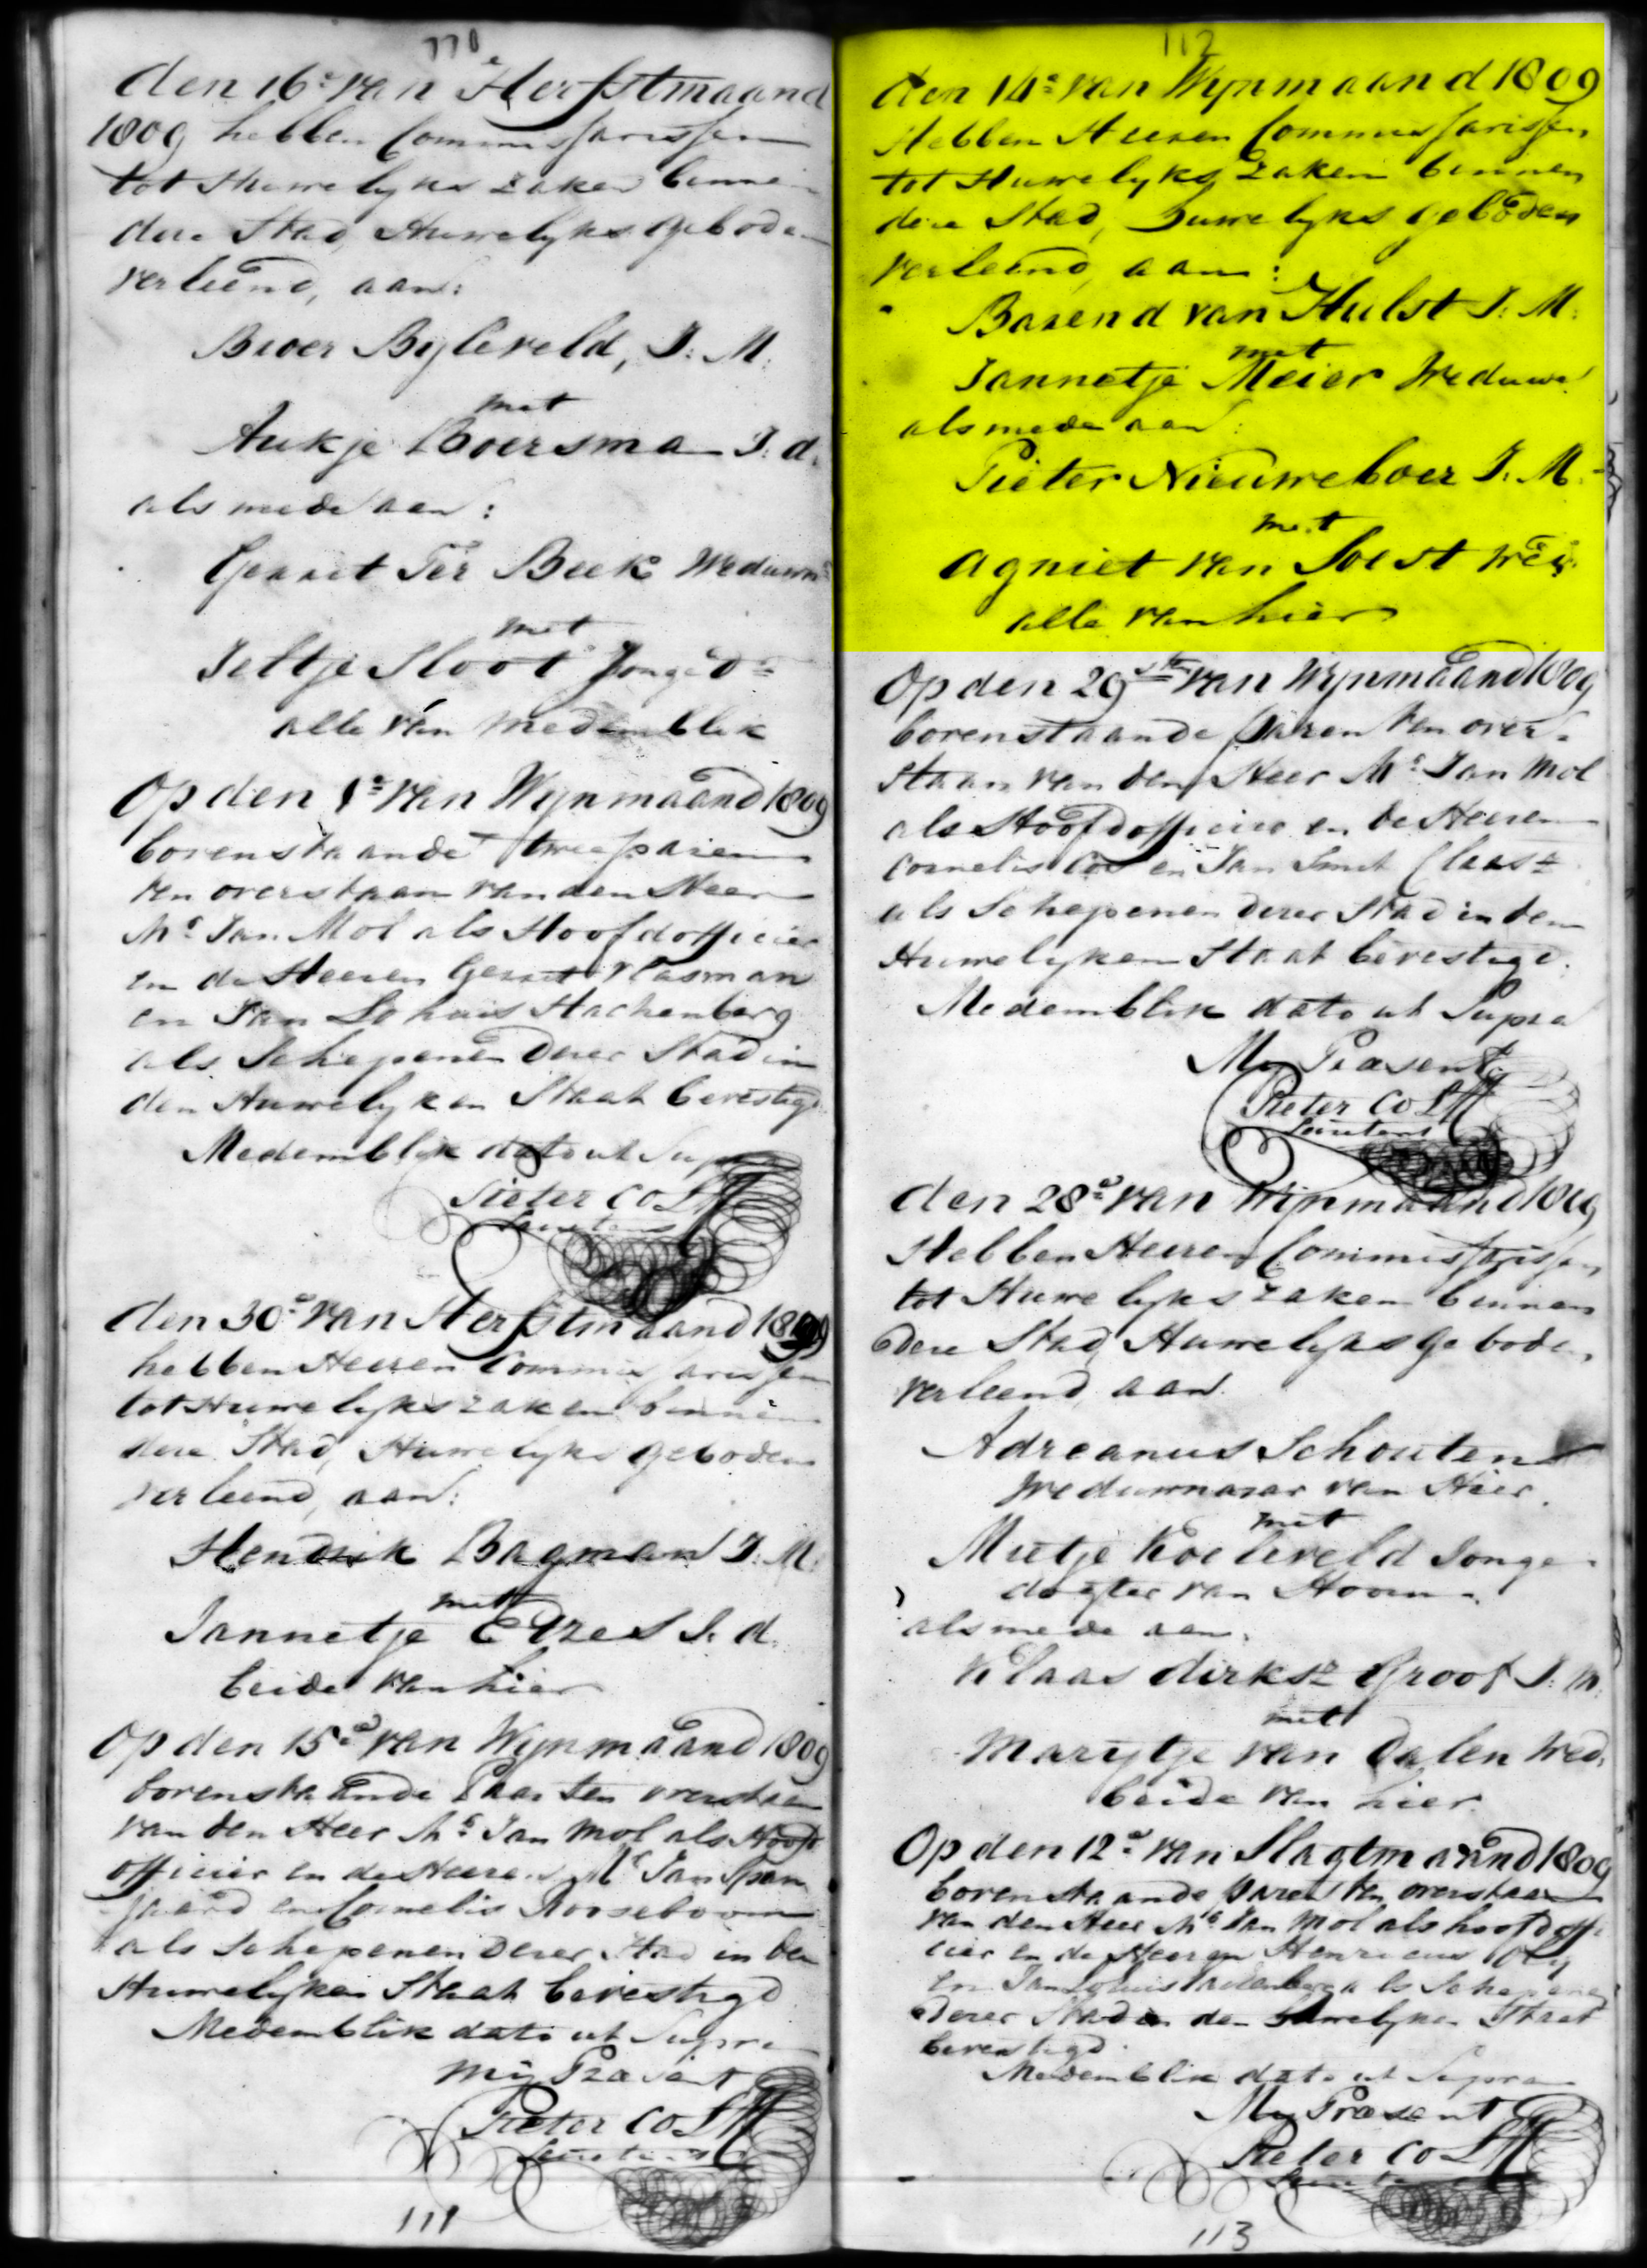 110
den 16e van Herfstmaand
1809 hebben Commissarissen
tot Huwelyks zaken binnen
dese Stad, Huwelyks geboden
verleend, aan:
Broer Byleveld, J: M:
met
Aukje Boersma J: d:
als mede aan:
Gerrit Ter Beek Weduwn
met
Jeltje Sloot Jonge Dr
alle van Medemblik
Op den 1e van Wynmaand 1809
bovenstaande twee paren
ten overstaan van den Heer
Mr Jan Mol als Hoofdofficier
en de Heeren Gerrit Vlasman
en Jan Lohuis Hachenberg
als Schepenen Deser Stad in
den Huwelyken Staat bevestigd
Medemblik dato ut Supra
Pieter Coll
Secretaris
den 30e van Herfstmaand 1809
hebben Heeren Commissarissen
tot Huwelyks zaken binnen
dese Stad, Huwelyks geboden
verleend, aan:
Hendrik Bagman J: M:
met
Jannetje Edzes J: d:
beide van hier
Op den 15e van Wynmaand 1809
bovenstaande Paar ten overstaan
van den Heer Mr Jan Mol als Hoofd
officier en de Heeren Mr Jan Span
jaard en Cornelis Rooseboom
als Schepenen Deser Stad in den
Huwelyken Staat bevestigd
Medemblik dato ut Supra
My Præsent
Pieter Coll
Secretaris
111
112
den 14e van Wynmaand 1809
Hebben Heeren Commissarissen
tot Huwelyks Zaken binnen
dese Stad, Huwelyks geboden
verleend, aan:
Barend van Hulst J: M:
met
Jannetje Meier Weduwe
als mede aan:
Pieter Nieuweboer J: M:
met
Agniet van Soest Wed:
alle van hier
Op den 29sten van Wynmaand 1809
bovenstaande Paren ten over-
staan van den Heer Mr Jan Mol
als Hoofdofficier en de Heeren
Cornelis Cos en Jan Smit Claasz
als Schepenen Deser Stad in den
Huwelyken Staat bevestigd.
Medemblik dato ut Supra
My Præsent
Pieter Coll
Secretaris
den 28e van Wynmaand 1809
Hebben Heeren Commissarissen
tot Huwelyks zaken binnen
Dese Stad, Huwelyks geboden
verleend aan.
Adreanus Schouten
Weduwnaar van Hier.
met
Mietje Koeleveld Jonge
dogter van Hoorn.
als mede aan.
Klaas dirksz Groot J: M:
met
Marytje van Dalen Wed:
beide van hier.
Op den 12e van Slagtmaand 1809
bovenstaande Paren ten overstaan
van den Heer Mr Jan Mol als hoofdoffi
cier en de Heeren Henricus
en Jan Lohuis Hachenberg als Schepenen
Deser Stad in den Huwelyken Staat
bevestigd.
Medemblik dato ut Supra
My Præsent
Pieter Coll
Secretaris
113